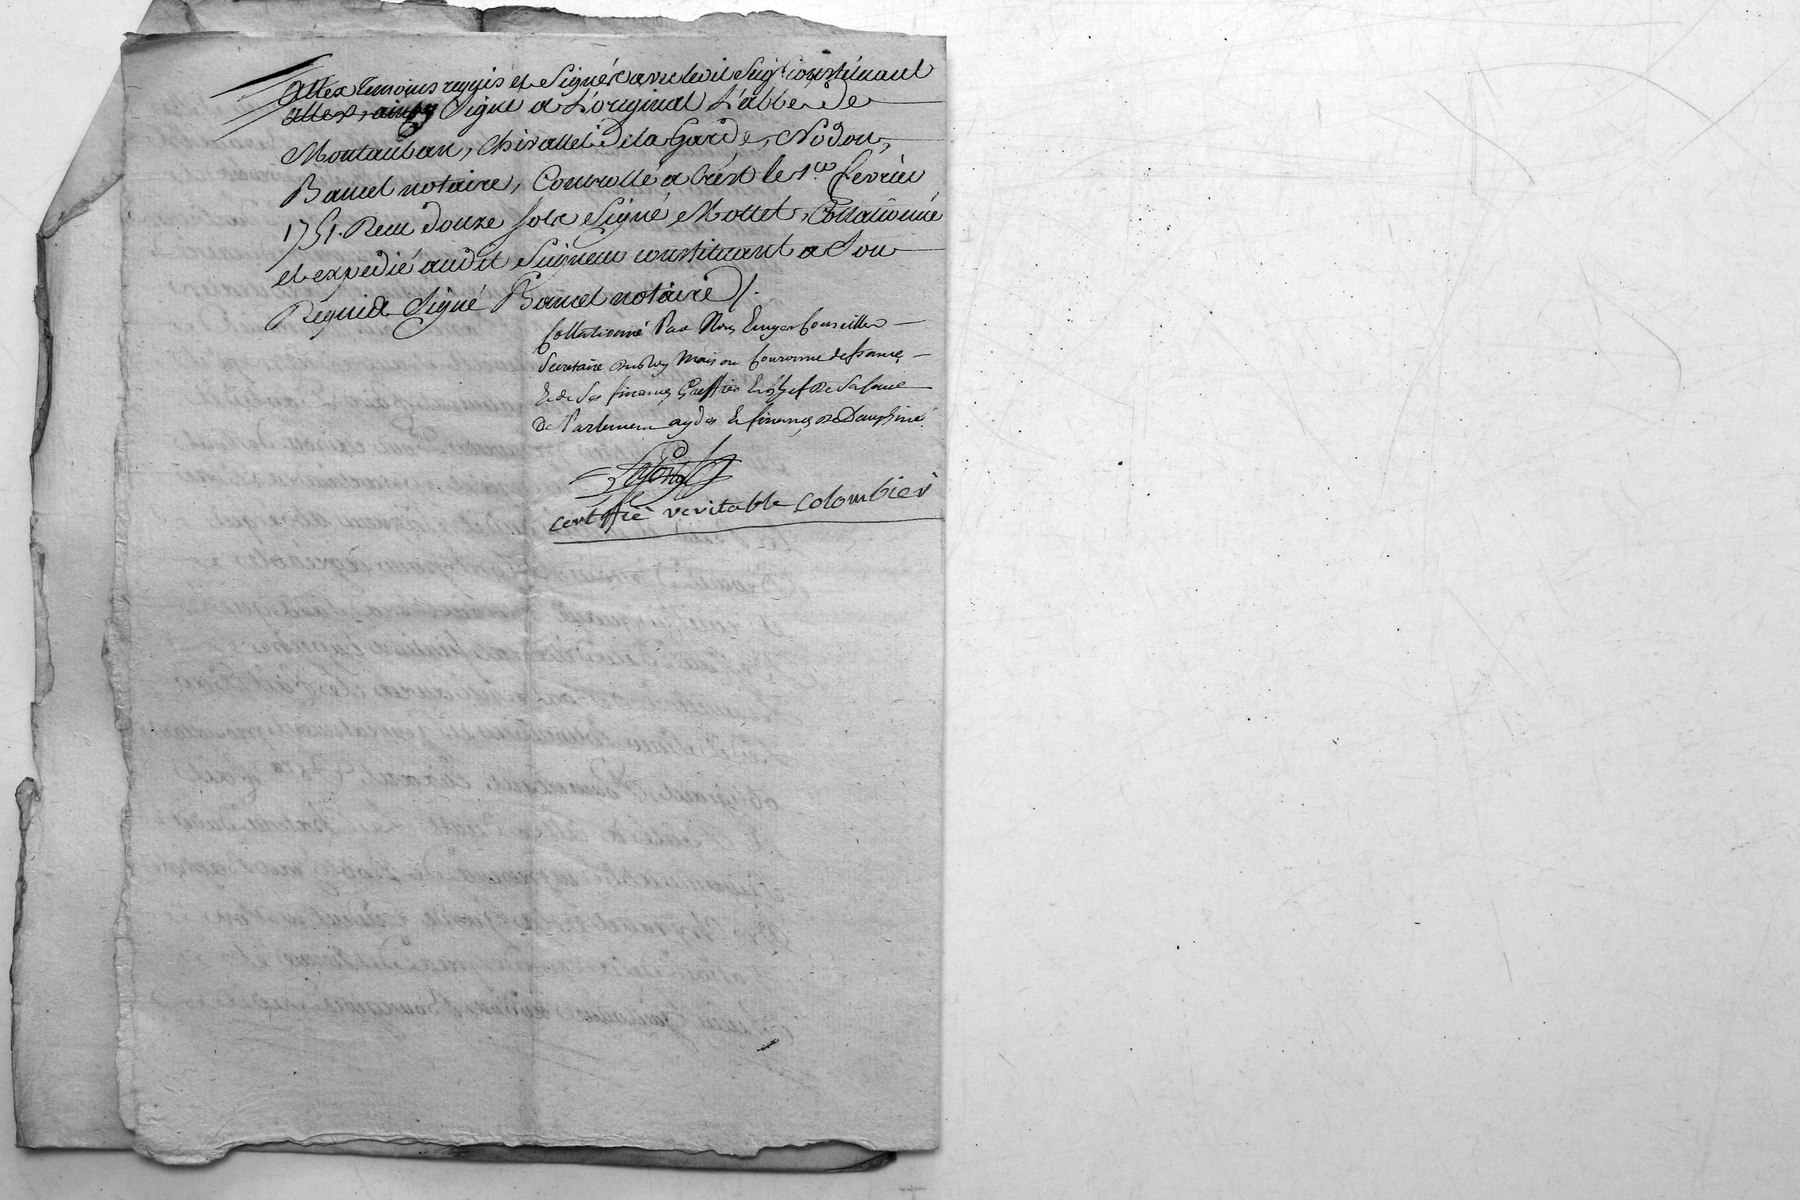 allex temoins requis et signés avec ledit seigr constituant
allex, ainsy signé a L'original L'abbé de
Montauban, chivallet de la Garde, Nodon,
Bancel notaire, Controllé a Crest le 1.er février
1751. Reçu douze sols signé Mottet, Collationné
et expedié audit Seigneur constituant a son
Requis. Signé Bancel notaire /.
Collationné Par Nous Ecuyer Conseiller
Secretaire du Roy Maison Couronne de france
Et de Ses finances Greffier En chef de la Cour
De Parlement aydes Et finances de Dauphiné.
certiffié veritable colombier